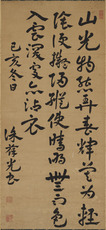 山光物態弄春輝莫為輕
陰便擬歸縱使晴明無雨色
入雲深處亦沾衣
己亥冬日